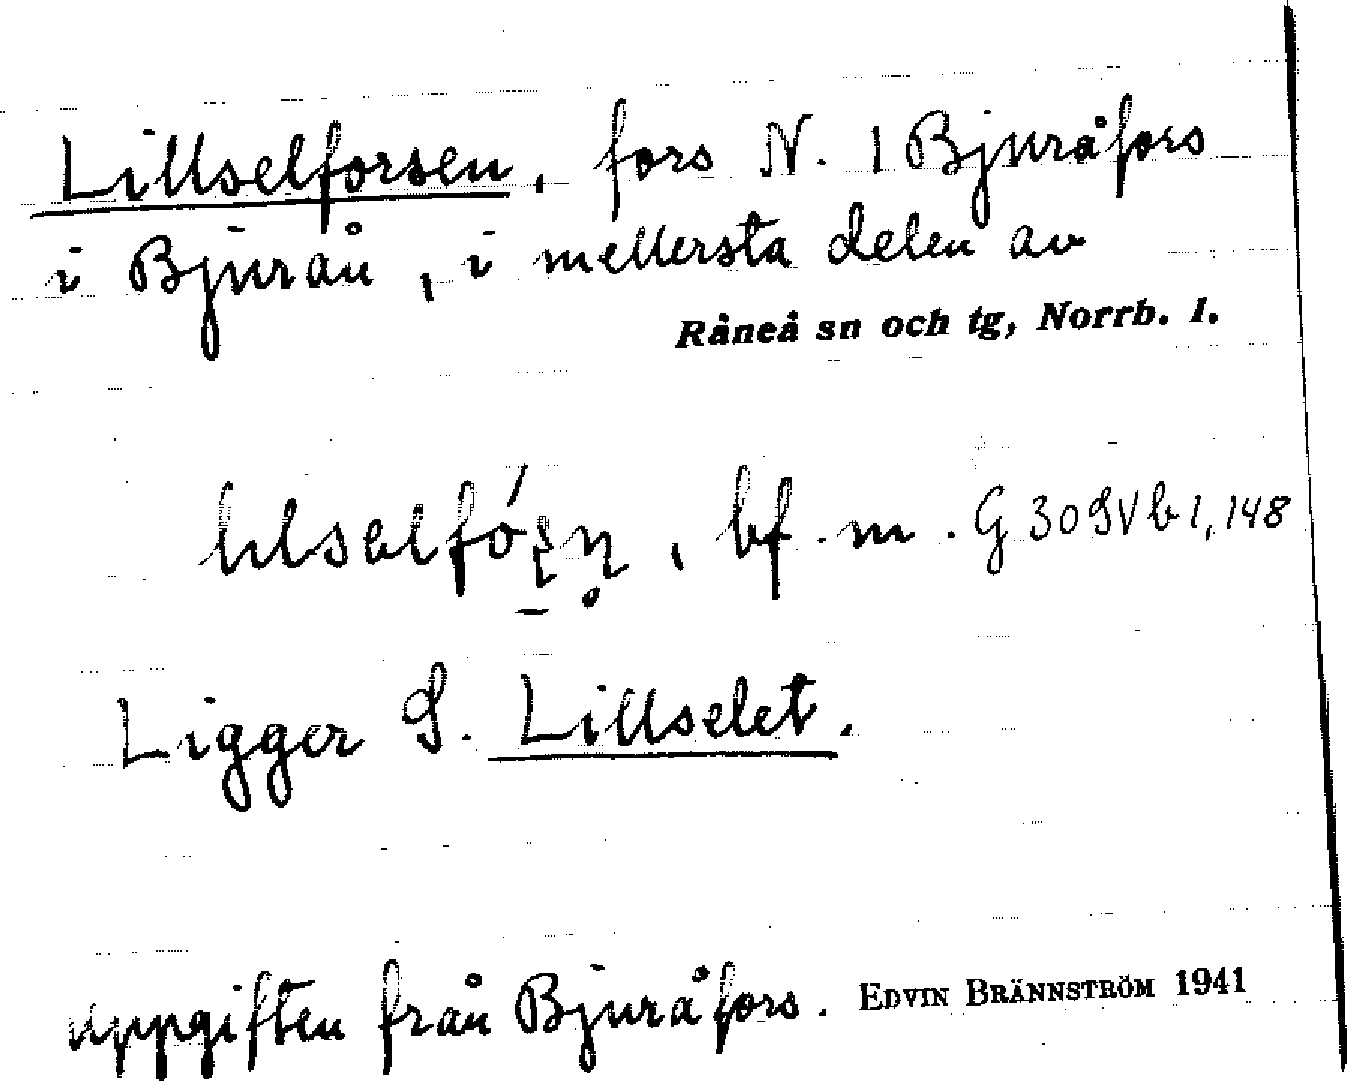 Lillselforsen, fors N. 1 Bjuråfors
i Bjurån, i mellersta delen av
Råneå sn och tg, Norrb. l.
bf. m. G 30 SVb 1, 148
Ligger S. Lillselet.
uppgiften från Bjuråfors. EDVIN BRÄNNSTRÖM 1941